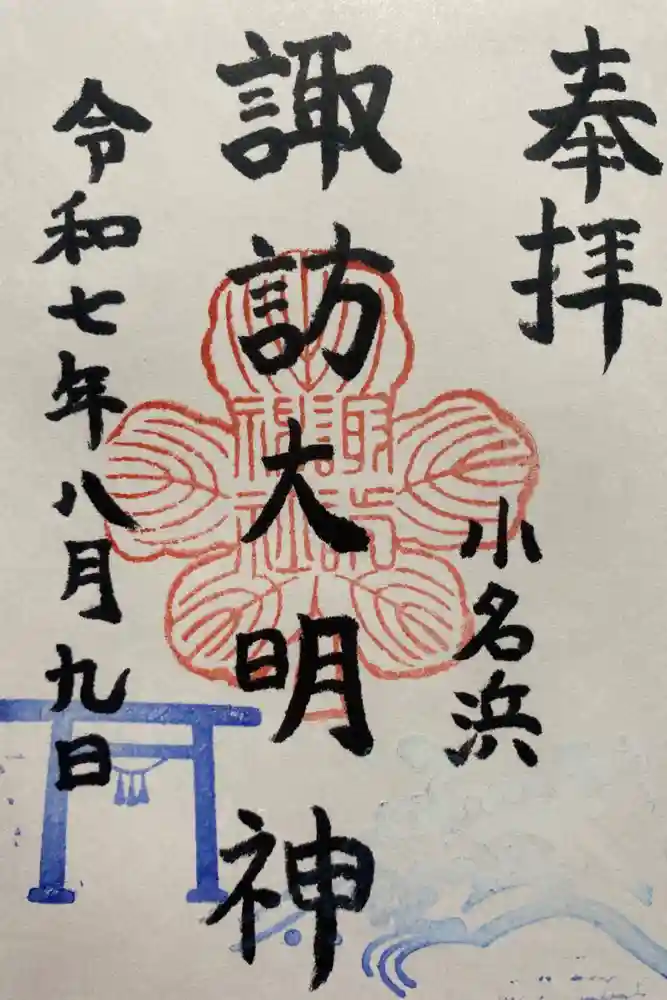 奉拝
小名浜
諏訪大明神
諏訪
神社
令和七年八月九日